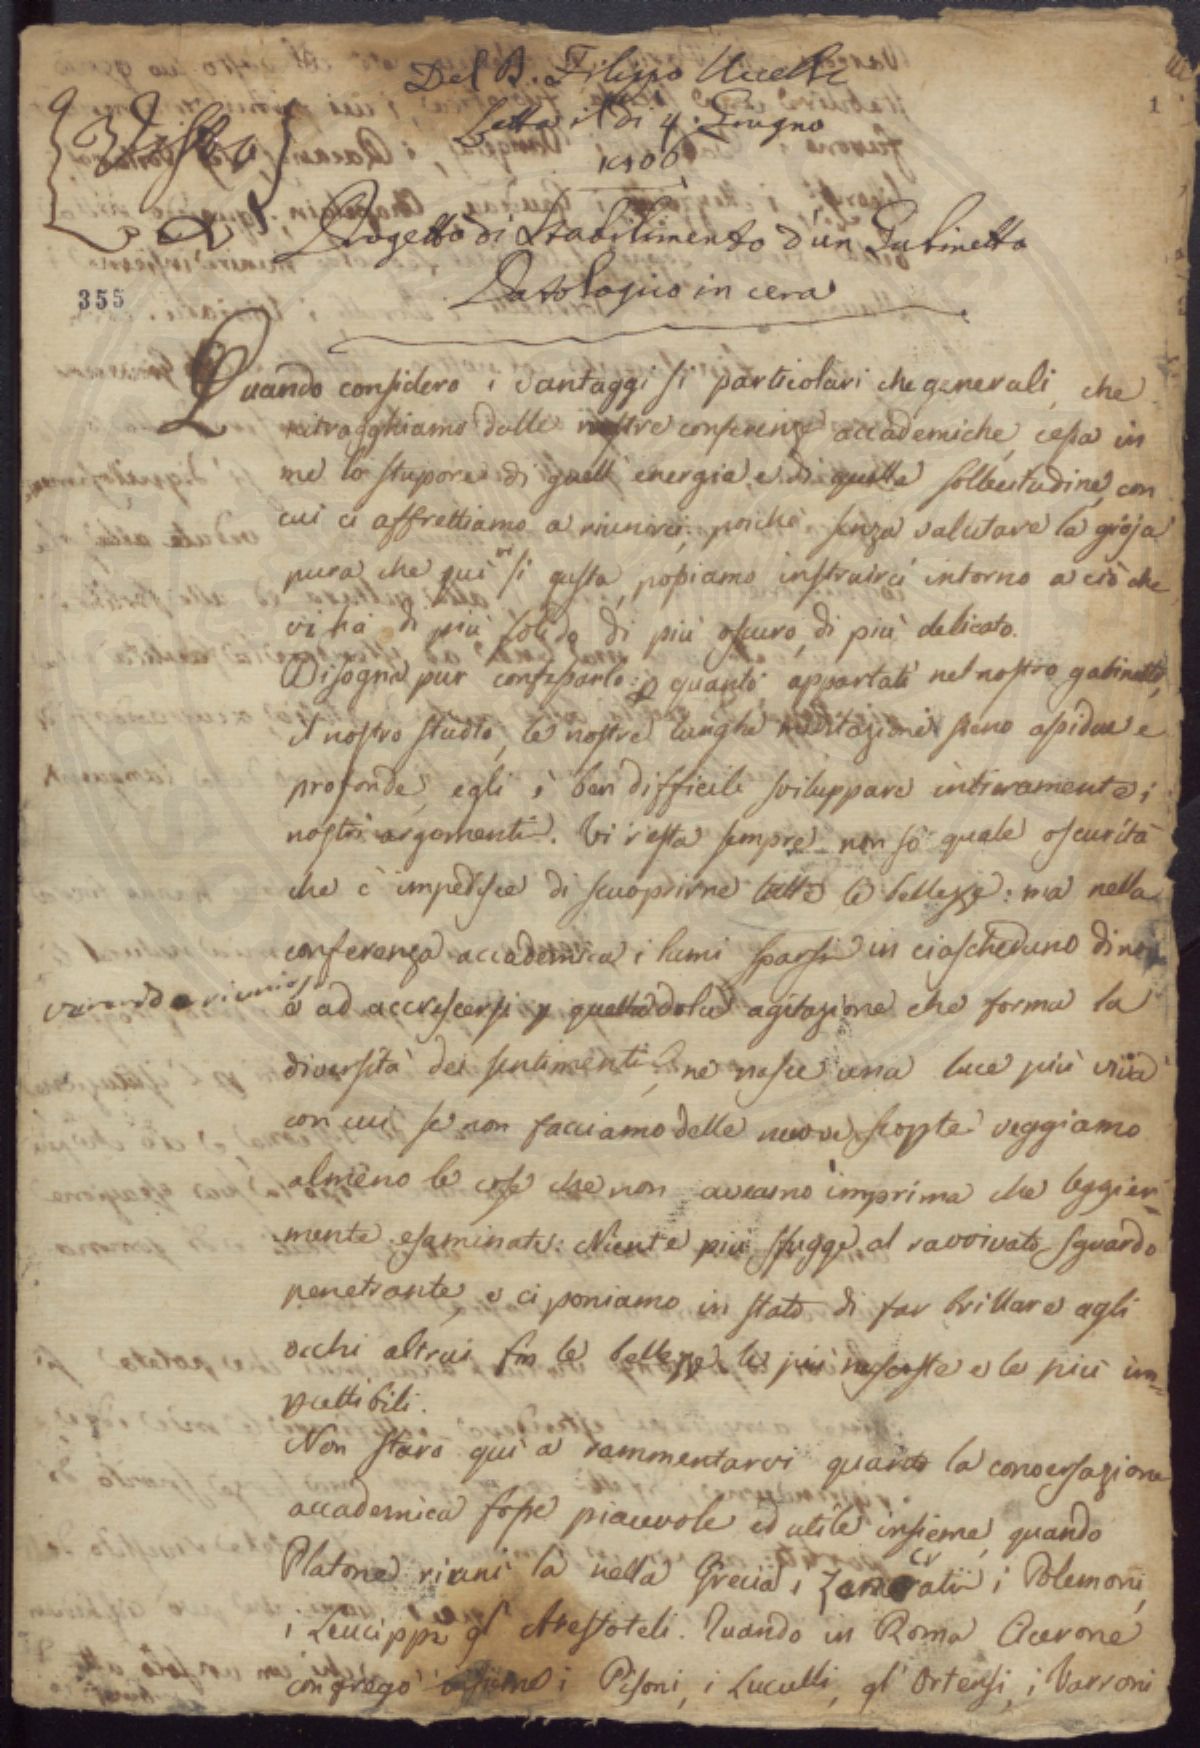 Del D. Filippo Uccelli
Letta il di 4. Giugno
1806
1
Vista
355
Progetto di Stabilimento d'un Gabinetto
Patologico in cera
Quando considero i vantaggi si particolari che generali, che
ritragghiamo dalle nostre conferenze accademiche, cessa in
me lo stupore di quell' energia, e di quella sollecitudine, con
cui ci affrettiamo a riunirci, poichè senza valutare la gioja
pura che quì vi si gusta, possiamo instruirci intorno a ciò che
vi ha di più solido, di più oscuro, di più delicato.
Bisogna pur confessarlo: p quanto appartati nel nostro gabinetto,
il nostro studio, le nostre lunghe meditazioni sieno assidue e
profonde, egli è ben difficile sviluppare intieramente i
nostri argomenti. Vi resta sempre non so quale oscurità
che c'impedisce di scuoprirne tutte le bellezze: ma nella
conferenza accademica i lumi sparsi in ciascheduno di noi
venendo a riunirsi
o ad accrescersi p quella dolce agitazione che forma la
diversità dei sentimenti, ne nasce una luce più viva
con cui se non facciamo delle nuove scopte veggiamo
almeno le cose che non avevamo imprima che leggier=
mente esaminate. Niente più sfugge al ravvivato sguardo
penetrante, e ci poniamo in stato di far brillare agli
occhi altrui fin le bellezze le più nascoste e le più im=
pcettibili.
Non starò quì a rammentarvi quanto la conversazione
accademica fosse piacevole ed utile insieme, quando
Platone riunì là nella Grecia i i Polemoni,
i Leucippi, gl' Aristoteli. Quando in Roma Cicerone
congregò insieme i Pisoni, i Luculli, gl' Ortensi, i Varroni